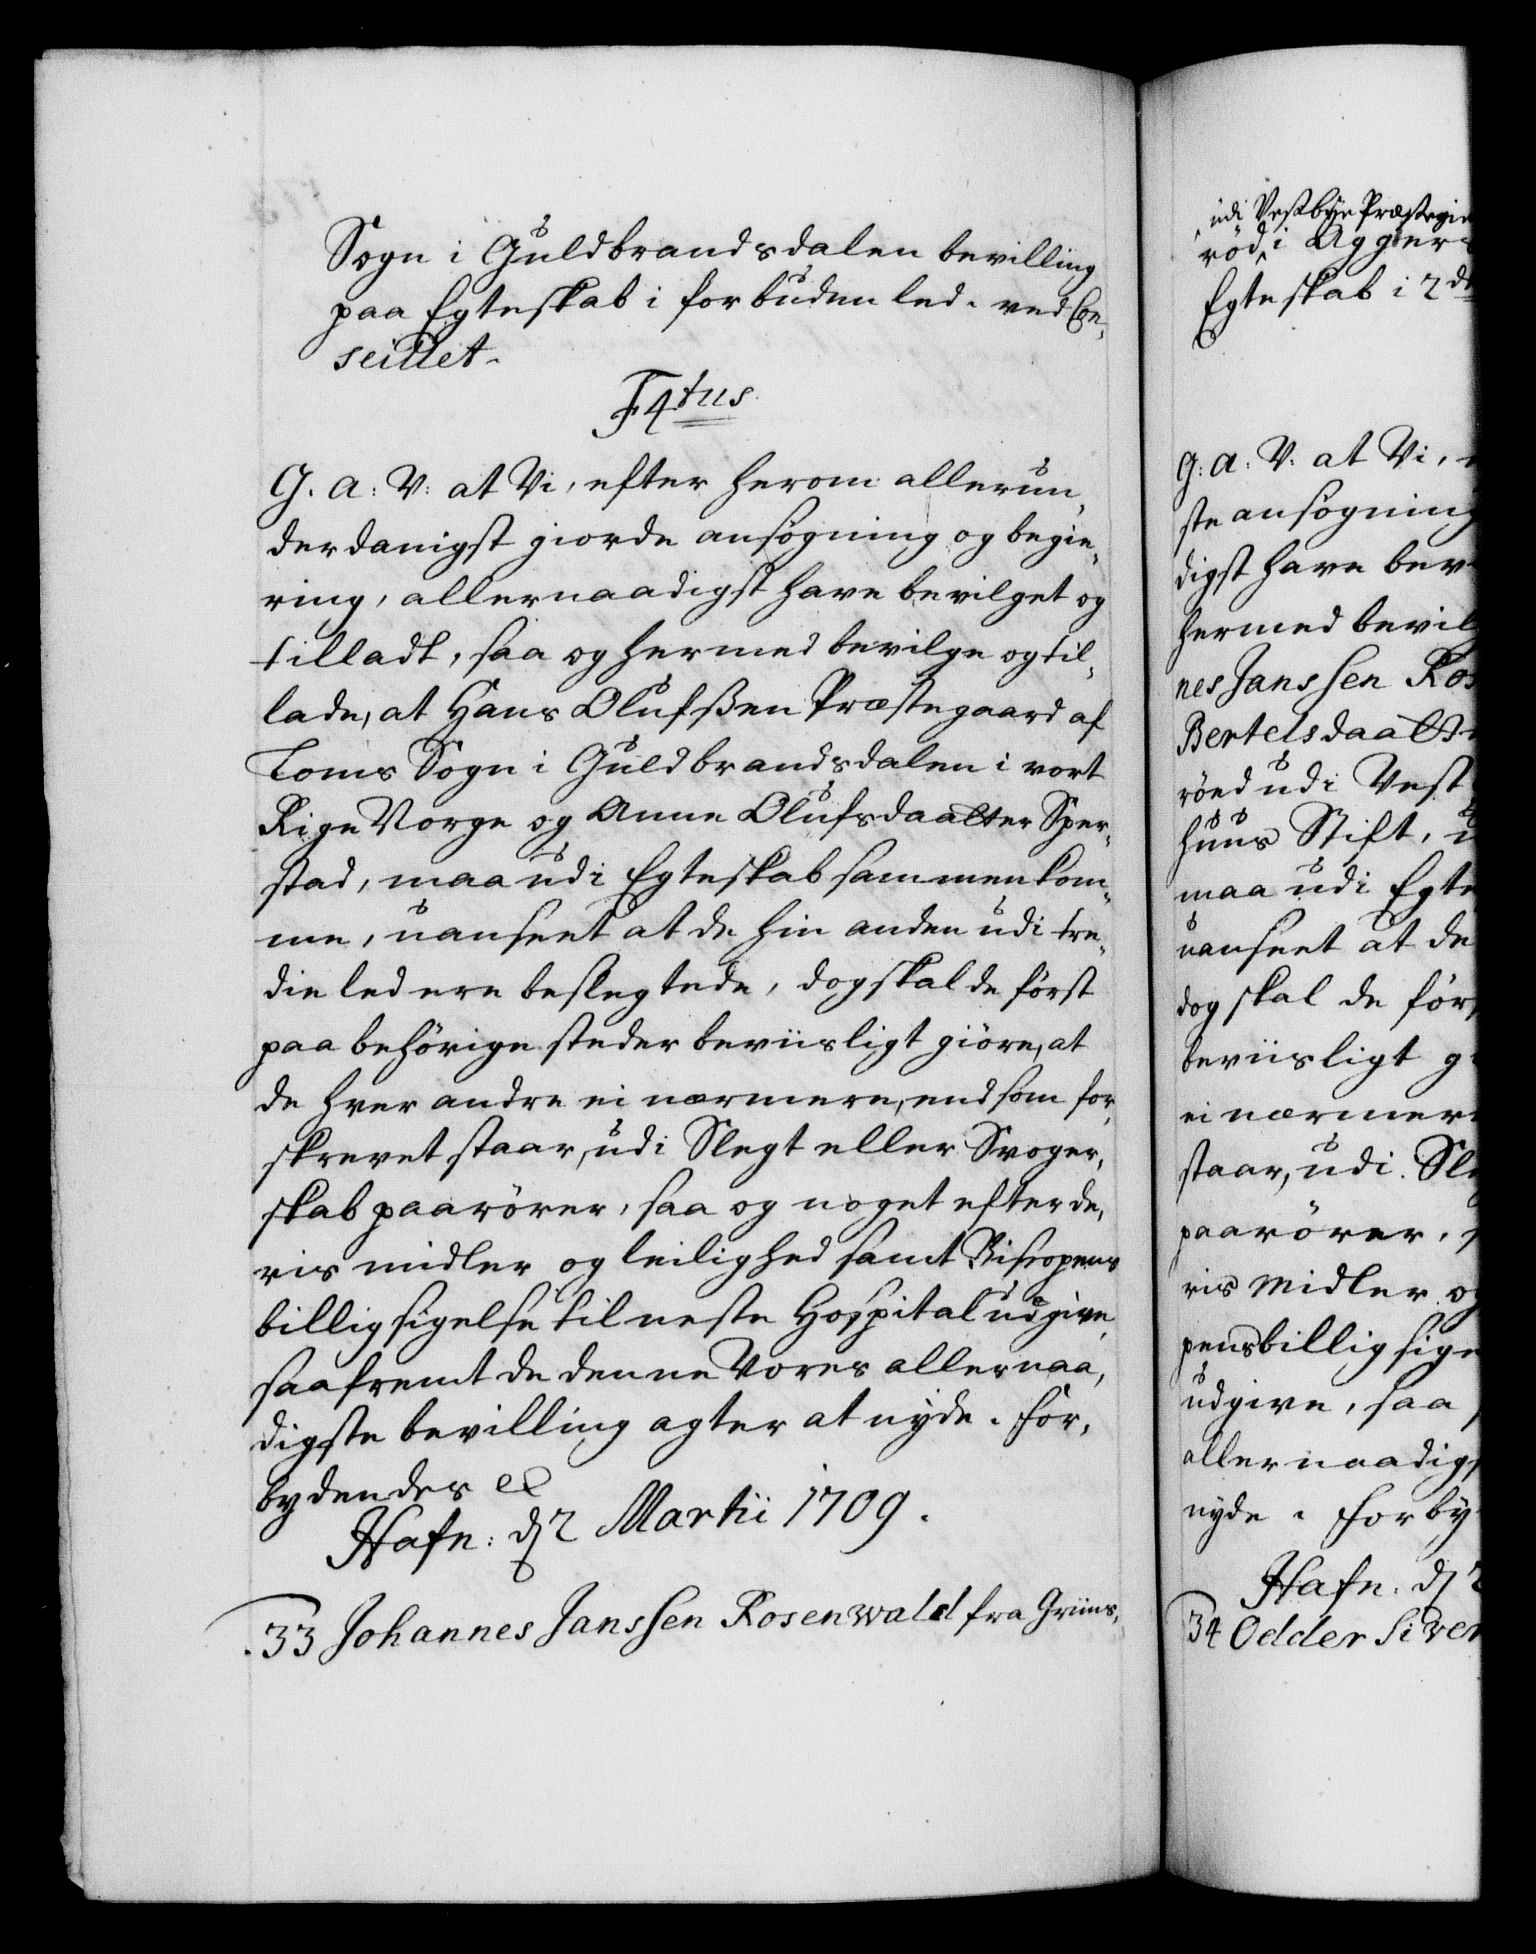 Sogn i Guldbrandsdalen bevilling
paa Egteskab i forbuden led. ved Con¬
seillet.
F4tus
G. A: V: at Vi, efter herom allerun¬
derdanigst giorde ansøgning og begie¬
ring, allernaadigst have bevilget og
tilladt, saa og hermed bevilge og til¬
lade, at Hans Olufssen Præstegaard af
Loms Sogn i Guldbrandsdalen i vort
Rige Norge og Anne Olufsdaatter Sper¬
stad, maa udi Egteskab sammenkom¬
me, uanseet at de hin anden udi tre¬
die led ere beslegtede, dog skal de først
paa behørige steder beviisligt giøre, at
de hver andre ei nærmere, end som for¬
skrevet staar, udi Slegt eller Svoger¬
skab paarører, saa og noget efter de¬
ris midler og leilighed samt Biscopens
billigsigelse til neste Hospital udgive,
saafremt de denne Vores allernaa¬
digste bevilling agter at nyde. For¬
bydendes etc
Hafn: d 2 Martii 1709.
33 Johannes Janssen Rosenwald fra Griims¬
udi Vestbye Præstegie
rød, i Agger
Egteskab i 2de
G: A: V: at Vi,
ste ansøgning
digst have bev
hermed bevilg
nes Janssen Ros
Bertelsdaatte
røed udi Vest
huus Stift,
maa udi Egte
uanseet at de
dog skal de før
beviisligt gi
ei nærmer
staar, udi Sle
paarører, s
ris Midler og
pens billigsige
udgive, saa
allernaadigs
nyde. Forby
Hafn: d 2
34 Odder Siver